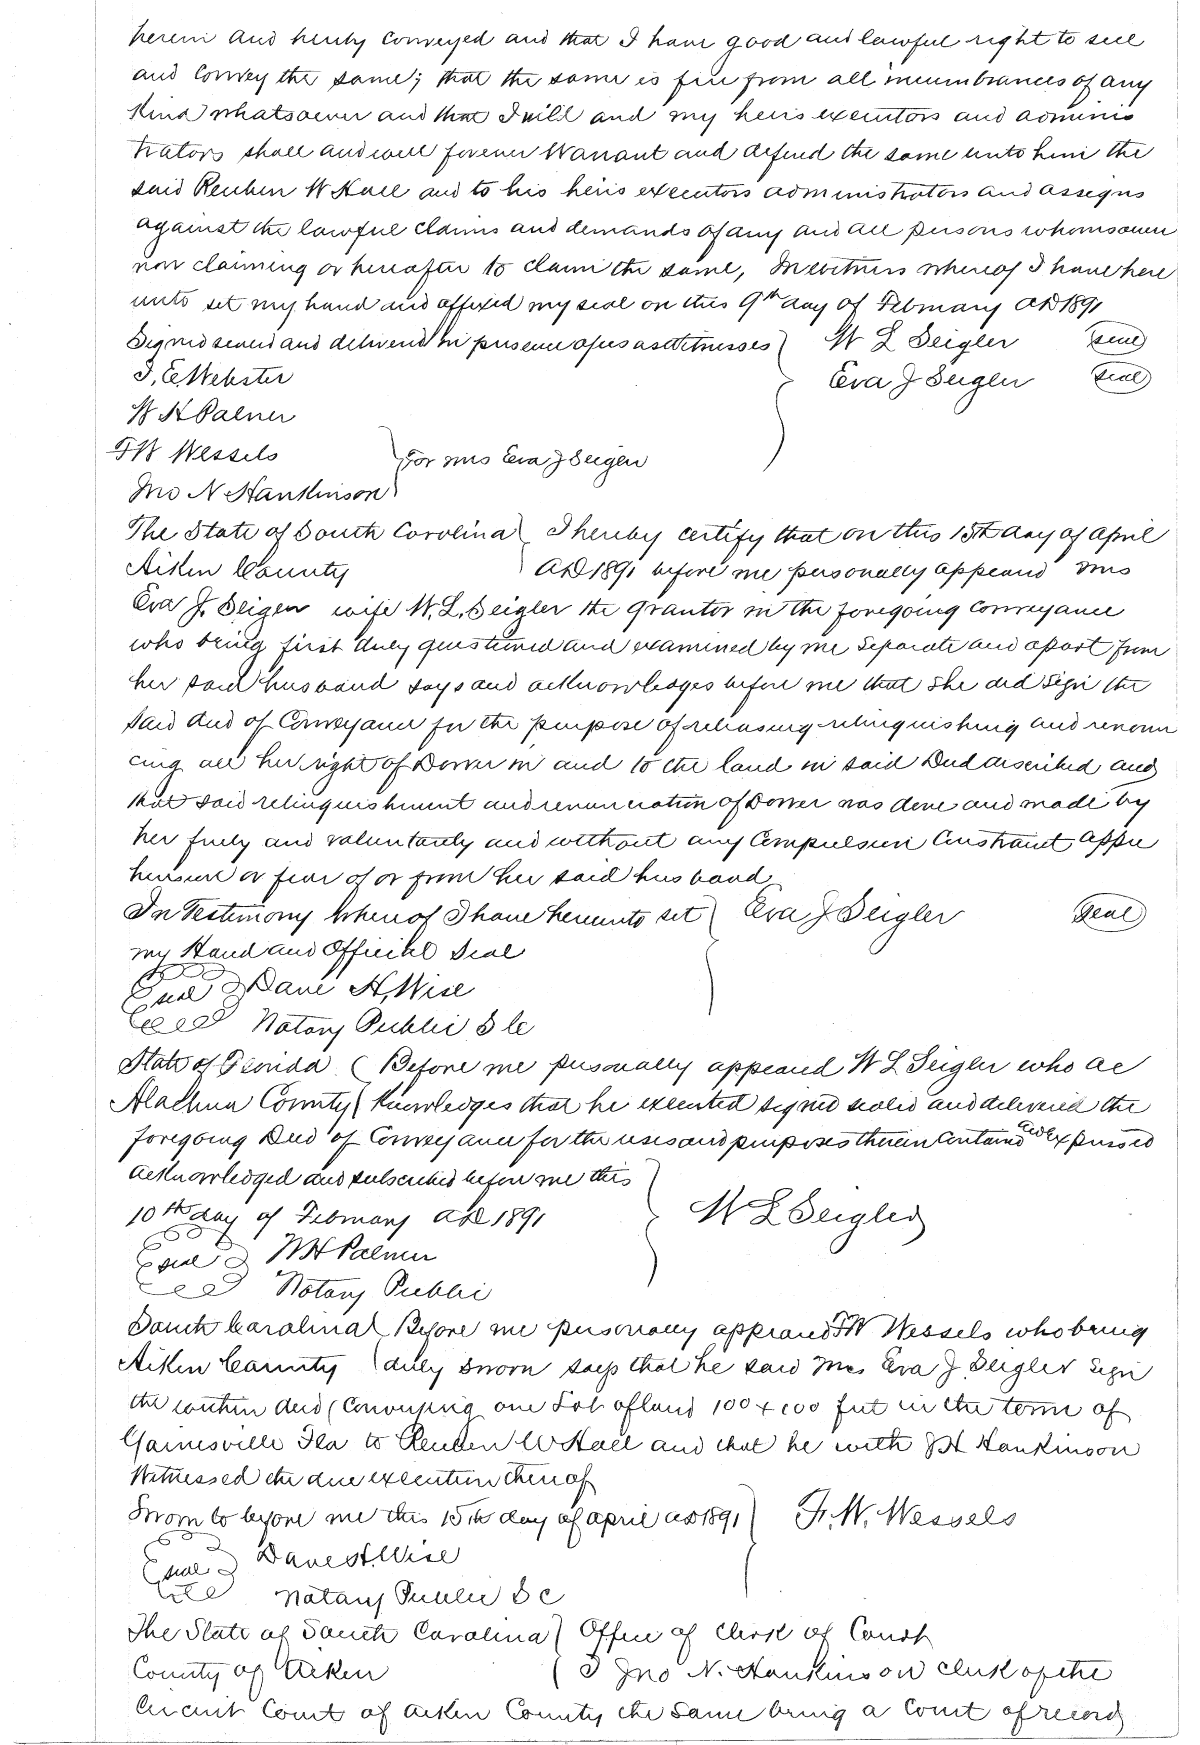 herein and hereby conveyed and that I have good and lawful right to sell
and convey the same; that the same is free from all incumbrances of any
kind whatsoever and that I will and my heirs executors and adminis
trators shall and will forever Warrant and defend the same unto him the
said Reuben W Hall and to his heirs executors administrators and assigns
against the lawful claims and demands of any and all persons whomsoever
now claiming or hereafter to claim the same, In witness whereof I have here
unto set my hand and affixed my seal on this 9th day of February AD 1891
Signed sealed and delivered in presence of us as witnesses W L Seigler seal
J. E. Webster Eva J Seigler seal
W H Palmer
FW Wessels
For mrs Eva J Seigler
Jno N Hankinson
The State of South Carolina I hereby certify that on this 15th day of April
Aiken County AD 1891 before me personally appeared mrs
Eva J. Seigler wife W. L. Seigler the grantor in the foregoing conveyance
who being first duly questioned and examined by me separate and apart from
her said husband says and acknowledges before me that she did sign the
said deed of Conveyance for the purpose of releasing relinquishing and renoun
cing all her right of Dower in and to the land in said Deed described and
that said relinquishment and renunciation of Dower was done and made by
her freely and voluntarily and without any Compulsion Constraint appre
hension or fear of or from her said husband
In Testimony Whereof I have hereunto set Eva J Seigler Seal
my Hand and Official Seal
seal Dave H. Wise
Notary Public S C
State of Florida Before me personally appeared W L Seigler who ac
Alachua County Knowledges that he executed signed sealed and delivered the
foregoing Deed of Conveyance for the uses and purposes therein contained and expressed
acknowledged and subscribed before me this
10th day of February AD 1891 W L Seigler
seal W H Palmer
Notary Public
South Carolina Before me personally appeared FW Wessels who being
Aiken County duly sworn says that he said Mrs Eva J Seigler sign
the within deed (Conveying one Lot of land 100 x 100 feet in the town of
Gainesville Fla to Reuben W Hall and that he with J H Hankinson
Witnessed the due execution thereof
Sworn to before me this 15th day of april ad 1891 F. W. Wessels
seal Dave H. Wise
Notary Public S C
The State of South Carolina Office of Clerk of Court
County of Aiken I Jno N. Hankinson clerk of the
Circuit Court of Aiken County the same being a Court of record